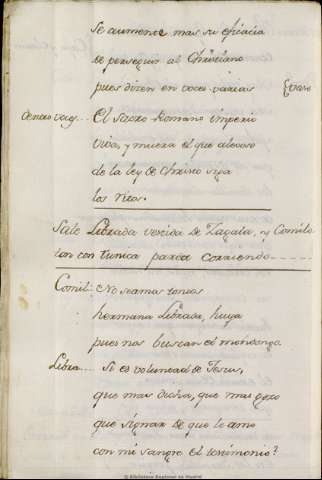 Se aumente mas su eficacia
de perseguir al Christiano
pues dicen en voces varias
Dentro voces... El Sacro Romano imperio
viva, y muera el que alevoso
de la ley de Christo siga
los ritos.
Sale Librada vestida de Zagala, y Comilo
ton con tunica parda corriendo
Comil: No seamos tontos
hermana Librada, huya
pues nos buscan el mondongo
Libra... Si es voluntad de Jesus,
que mas dicha, que mas gozo
que signar de que le amo
con mi sangre el testimonio?
© Biblioteca Regional de Madrid